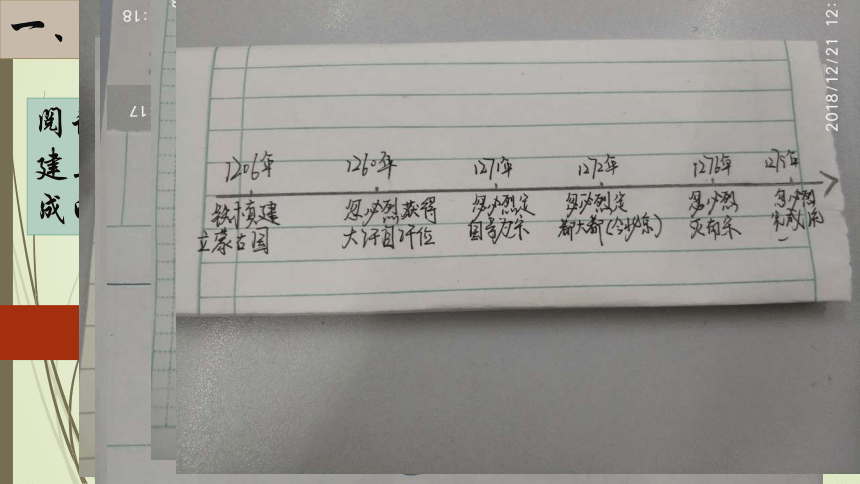 一、
阅
建
成
:18
:17
2018/12/21 12:
1206年 1260年 1271年 1272年 1276年 1279年
铁木真建 忽必烈获得 忽必烈定 忽必烈定 忽必烈 忽必烈
立蒙古国 大汗国汗位 国号为 都大都(今北京) 灭南宋 完成统
一